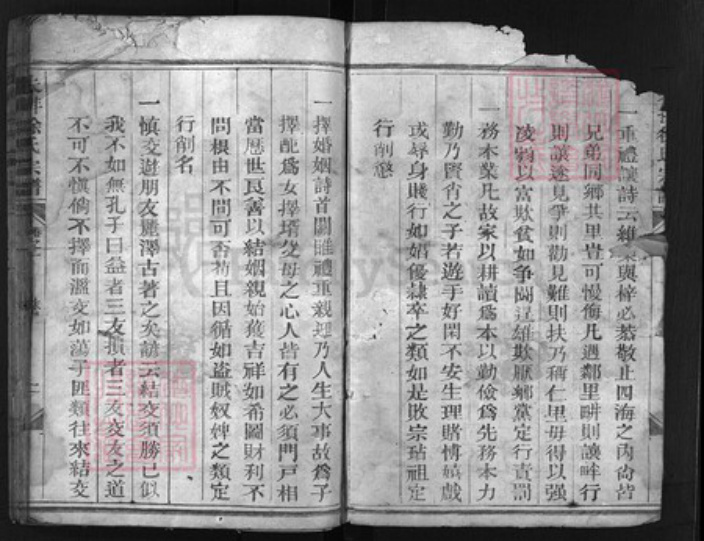 一重禮讓詩云維桑與梓必恭敬止四海之內尙皆
兄弟同鄉共里豈可慢侮凡遇鄰里畊則讓畔行
則讓途見爭則勸見難則扶乃稱仁里毋得以强
凌弱以富欺貧如争鬪是雄欺厭鄉黨定行責罰
一務本業凡故家以耕讀爲本以勤儉爲先務本力
勤乃賢肖之子若遊手好閑不安生理賭愽嬉戲
或辱身賤行如娼優隸卒之類如是敗宗玷祖定
行削懲
一擇婚姻詩首關雎禮重親迎乃人生大事故爲子
擇配爲女擇壻父母之心人皆有之必須門戸相
當歷世良善以結姻親始獲吉祥如希圖財利不
問根由不問可否苟且因循如盜賊奴婢之類定
行削名
一慎交遊朋友麗澤古著之矣諺云結交須勝已似
我不如無孔子曰益者三友損者三友交友之道
不可不愼倘不擇而濫交如蕩子匪類往來結交
徐氏宗譜